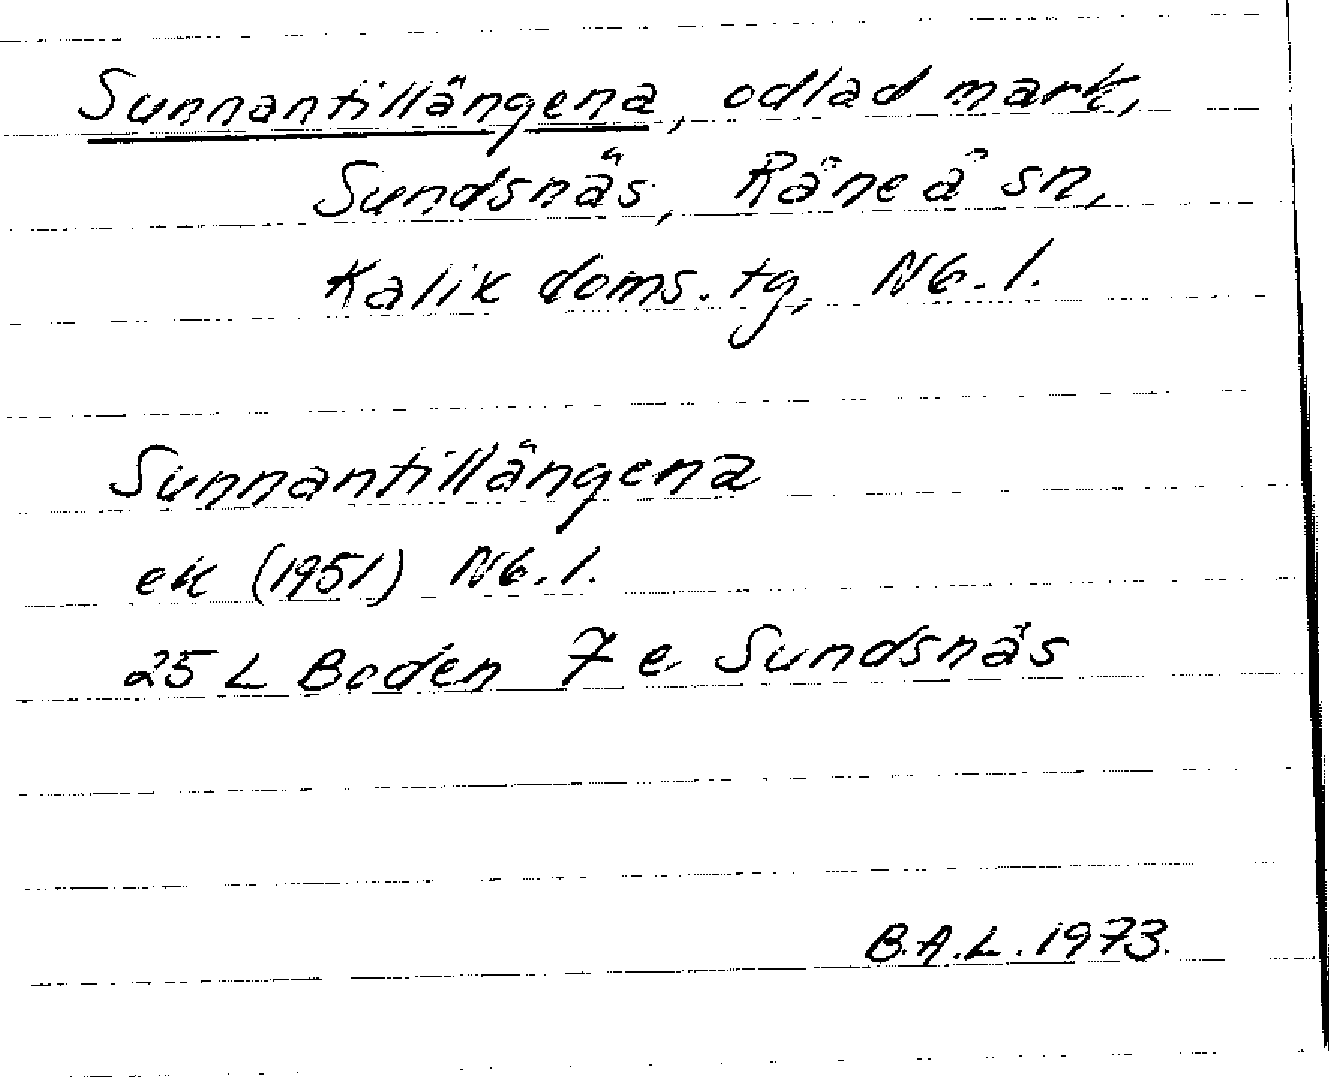 Sunnantillängena, odlad mark,
Sundsnäs, Råneå sn,
Kalix doms. tg, Nb. l.
Sunnantillängena
ek (1951) Nb. l.
25 L Boden 7 e Sundsnäs
B.A.L. 1973.